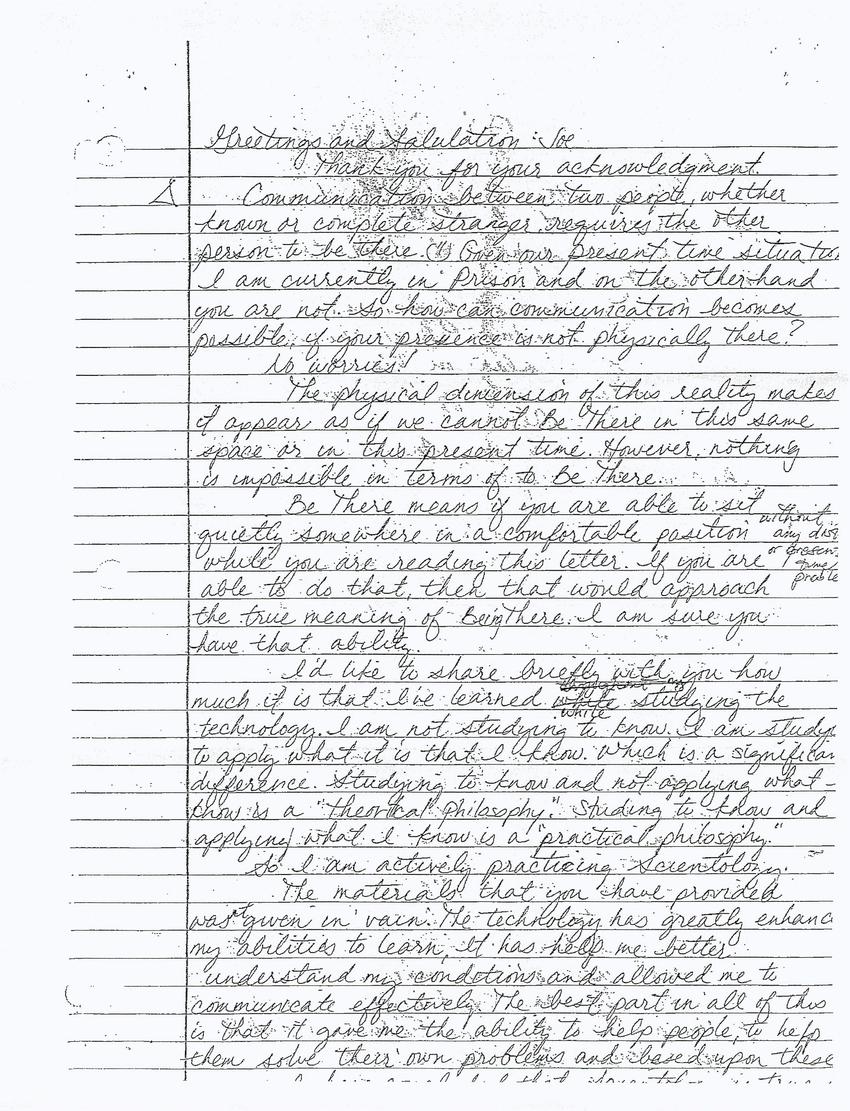 Greetings and Salulation: Joe
Thank you for your acknowledgment.
Communication between two people, whether
known or complete stranger, requires the other
person to be there. (") Given our present time situation
I am currently in Prison and on the other hand
you are not. So how can communication becomes
possible, if your presence is not physically there?
No worries!
The physical dimension of this reality makes
it appear as if we cannot Be There in this same
space or in this present time. However, nothing
is impossible in terms of to Be There.
Be There means if you are able to sit
quietly somewhere in a comfortable position without any dis
while you are reading this letter. If you are or present time proble
able to do that, then that would approach
the true meaning of Being There. I am sure you
have that ability.
I'd like to share briefly with you how
much it is that I've learned while studying the
technology. I am not studying to know. I am study
to apply what it is that I know. Which is a significan
difference. Studying to know and not applying what
know is a "theorical philosophy." Studing to know and
applying what I know is a "practical philosophy."
So I am actively practicing Scientology.
The materials that you have provided
was not given in vain. The technology has greatly enhanc
my abilities to learn, It has help me better
understand my conditions and allowed me to
communicate effectively. The best part in all of this
is that it gave me the ability to help people, to help
them solve their own problems and based upon these